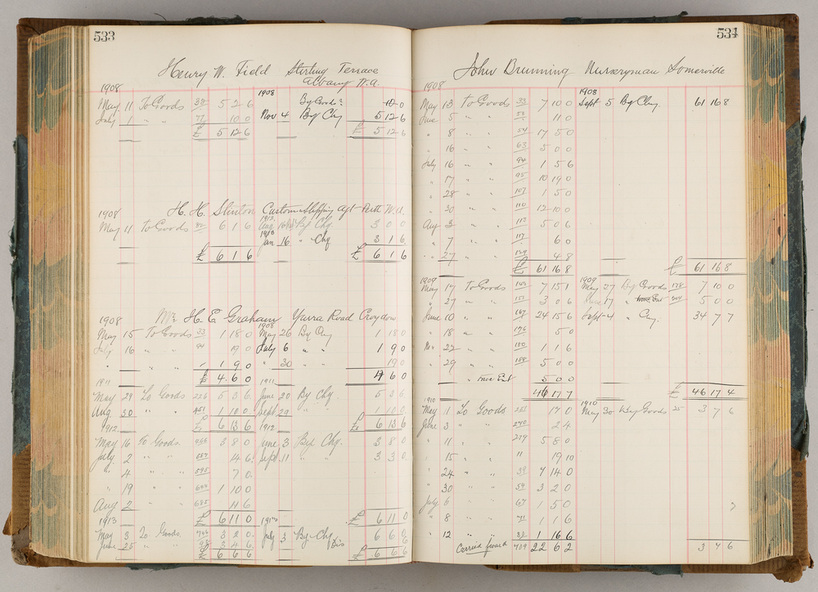 533
Henry W. Field Stirling Terrace
Albany W.A.
1908 1908
May 11 To Goods 5 2 6 By Goods 10 0
July 1 " " 10 0 Nov 4 By Chq 5 12 6
£ 5 12 6 £ 5 12 6
1908 H. H. Stinton Custom & Shipping Agt Perth W.A.
May 11 To Goods 6 1 6 By Chq 3 0 0
Jan 16 " Chq 3 1 6
£ 6 1 6 £ 6 1 6
1908 H. E. Graham Yarra Road Croydon
1908
May 15 To Goods 1 18 0 May 26 By Chq 1 18 0
July 16 " " 19 0 July 6 " " 1 9 0
" " 1 9 0 " 30 " " 19 0
£ 4 6 0 4 6 0
1911 1911
May 21 To Goods 5 3 6 June 20 By Chq 5 3 6
Aug 30 " " 1 10 0 Sept 29 " " 1 10 0
1912 £ 6 13 6 1912 £ 6 13 6
May 16 To Goods 3 8 0 June 3 By Chq 3 8 0
July 2 " " 14 6 Sept 11 " " 3 3 0
" 4 " " 7 0
" 19 " " 1 10 0
Aug 2 " " 11 6
£ 6 11 0 £ 6 11 0
1913
May 3 To Goods 3 2 0 July 3 By Chq 6 6
June 25 " " 3 4 6 Dis
£ 6 6 6 £ 6 6 6
534
John Brunning Nurseryman Somerville
1908 1908
May 13 To Goods 7 10 0 Sept 5 By Chq 61 16 8
June 5 " " 11 0
" 8 " " 17 5 0
" 16 " " 5 0 0
July 16 " " 1 5 6
" 17 " " 10 19 0
" 28 " " 1 5 0
" 30 " " 12 10 0
Aug 3 " " 5 0 6
" 7 " " 6 0
" 27 " " 4 8
£ 61 16 8 £ 61 16 8
1909 1909
May 17 To Goods 7 15 1 May 27 By Goods 7 10 0
" 27 " " 3 0 6 June 17 " 5 0 0
June 10 " " 24 15 6 Sept 4 " Chq 34 7 7
" 18 " " 5 0
Nov 22 " " 1 1 6
" 29 " " 5 0 0
" 5 0 0
46 17 7 £ 46 17 4
1910 1910
May 1 To Goods 17 0 May 30 By Goods 25 3 7 6
June 3 " " 2 4
" 11 " " 5 8 0
" 15 " " 19 10
" 24 " " 7 14 0
" 30 " " 3 2 0
July 6 " " 1 5 0
" 8 " " 1 1 6
" 12 " " 1 16 6
Carried forward 22 6 2 3 7 6